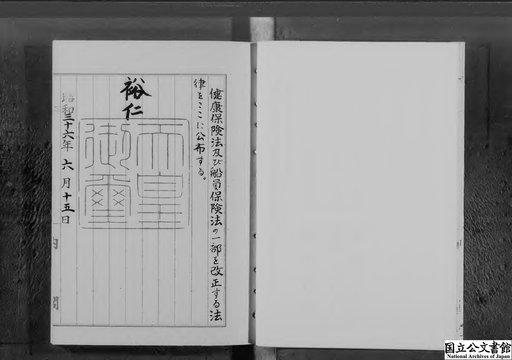 健康保険法及び船員保険法の一部を改正する法
律をここに公布する。
裕仁
天皇
御璽
昭和三十六年六月十五日
内閣
国立公文書館
National Archives of Japan